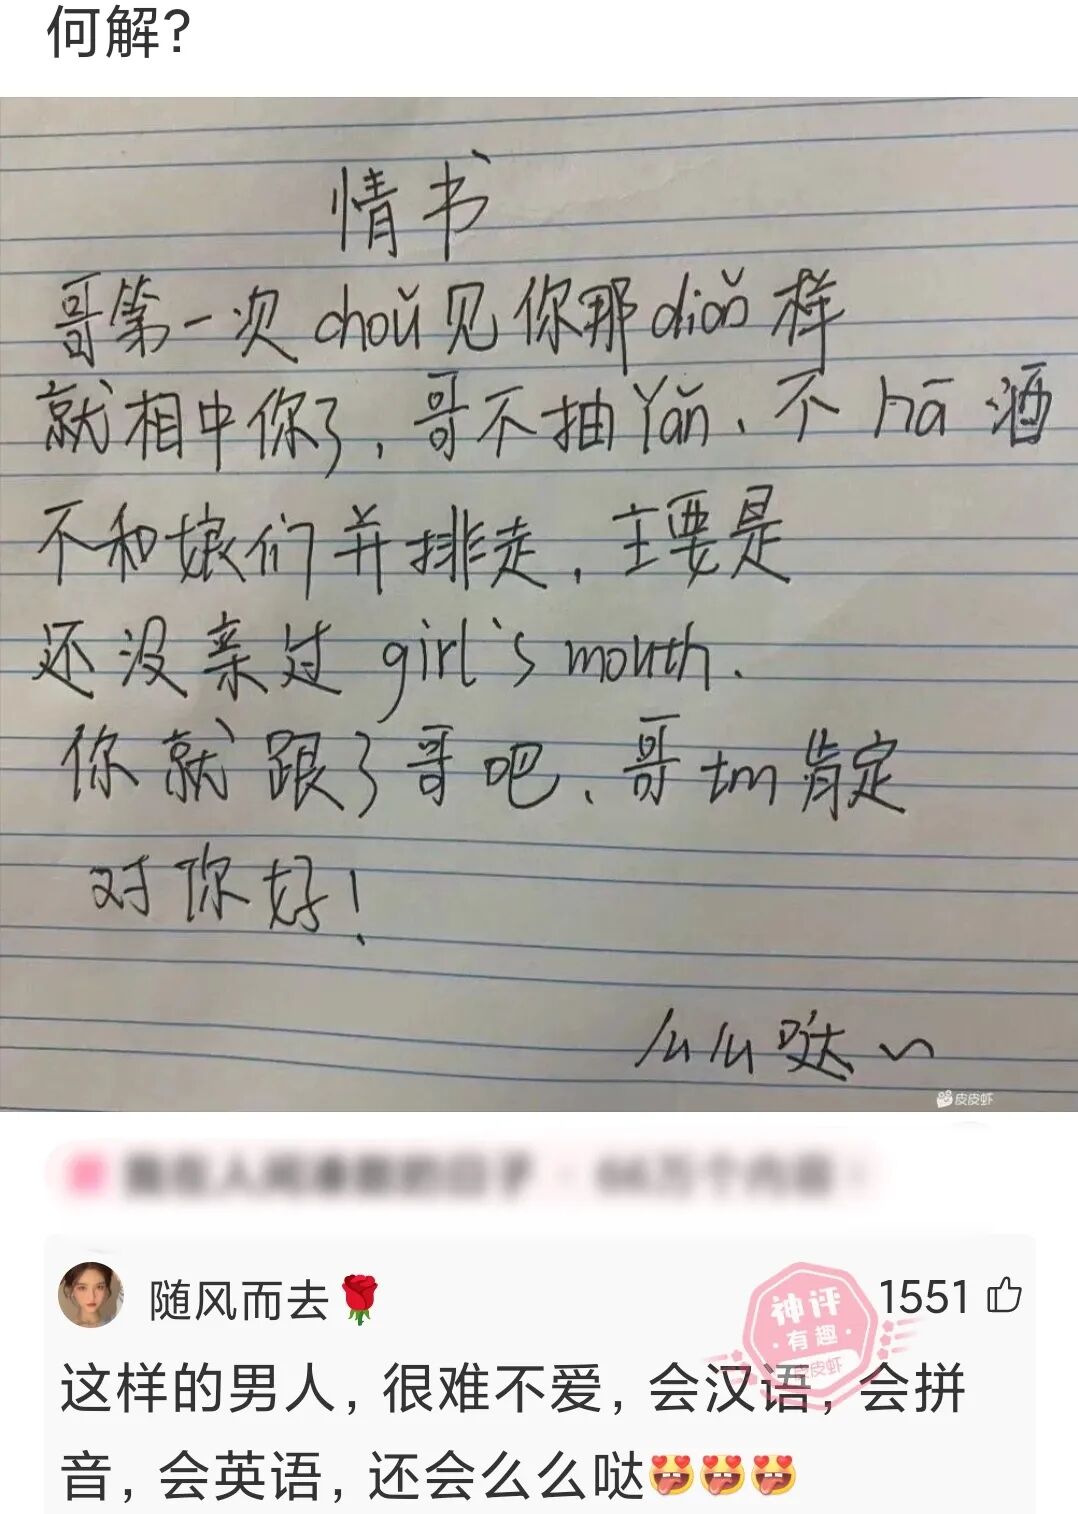 何解?
情书
哥第一次 choǔ 见你那 diaǒ 样
就相中你了,哥不抽 Yǎn、不 hā 酒
不和娘们并排走,主要是
还没亲过 girl's mouth.
你就跟了哥吧、哥 tm 肯定
对你好!
么么哒~
皮皮虾
随风而去🌹
神评
·有趣·
皮皮虾
1551
这样的男人,很难不爱,会汉语,会拼
音,会英语,还会么么哒😍😍😍